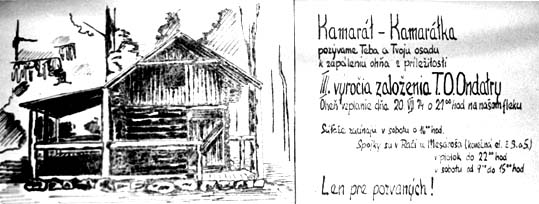 Kamarát - Kamarátka
pozývame Teba a Tvoju osadu
k zápaleniu ohňa z príležitosti
III. vyročia založenia T.O.Ondatry
Oheň vzplanie dňa 20 VII 74 o 21 00 hod na našom fleku
Súťaže začínajú v sobotu o hod.
Spojky su v Rači u Mesároša (konečná el. č 3. a 5)
v piatok do 22 00 hod
v sobotu od 7 00 do 15 00 hod
Len pre pozvaných!